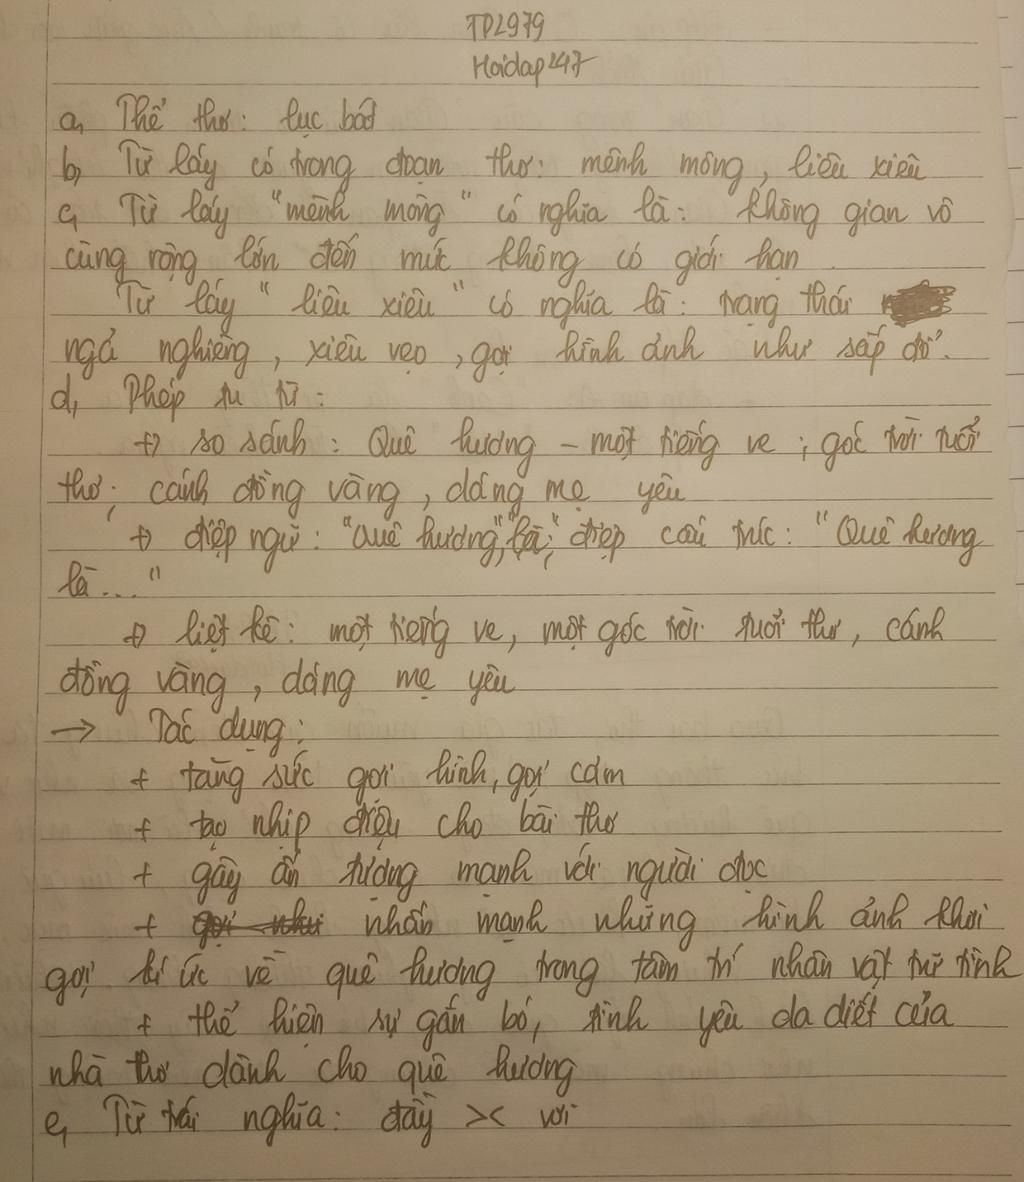 TPL979
Hoidap247
a, Thể thơ: lục bát
b, Từ láy có trong đoạn thơ: mênh mông, liêu xiêu
c, Từ láy "mênh mông" có nghĩa là: không gian vô
cùng rộng lớn đến mức không có giới hạn
Từ láy "liêu xiêu" có nghĩa là: trạng thái
ngả nghiêng, xiêu vẹo, gợi hình ảnh như sắp đổ.
d, Phép tu từ:
+) so sánh: Quê hương - một tiếng ve; góc trời tuổi
thơ; cánh đồng vàng, dáng mẹ yêu
+) điệp ngữ: "Quê hương", "là"; điệp cấu trúc: "Quê hương
là..."
+) liệt kê: một tiếng ve, một góc trời tuổi thơ, cánh
đồng vàng, dáng mẹ yêu
→ Tác dụng:
+ tăng sức gợi hình, gợi cảm
+ tạo nhịp điệu cho bài thơ
+ gây ấn tượng mạnh với người đọc
+ nhấn mạnh những hình ảnh khơi
gợi kí ức về quê hương trong tâm trí nhân vật trữ tình
+ thể hiện sự gắn bó, tình yêu da diết của
nhà thơ dành cho quê hương
e, Từ trái nghĩa: đầy >< vơi